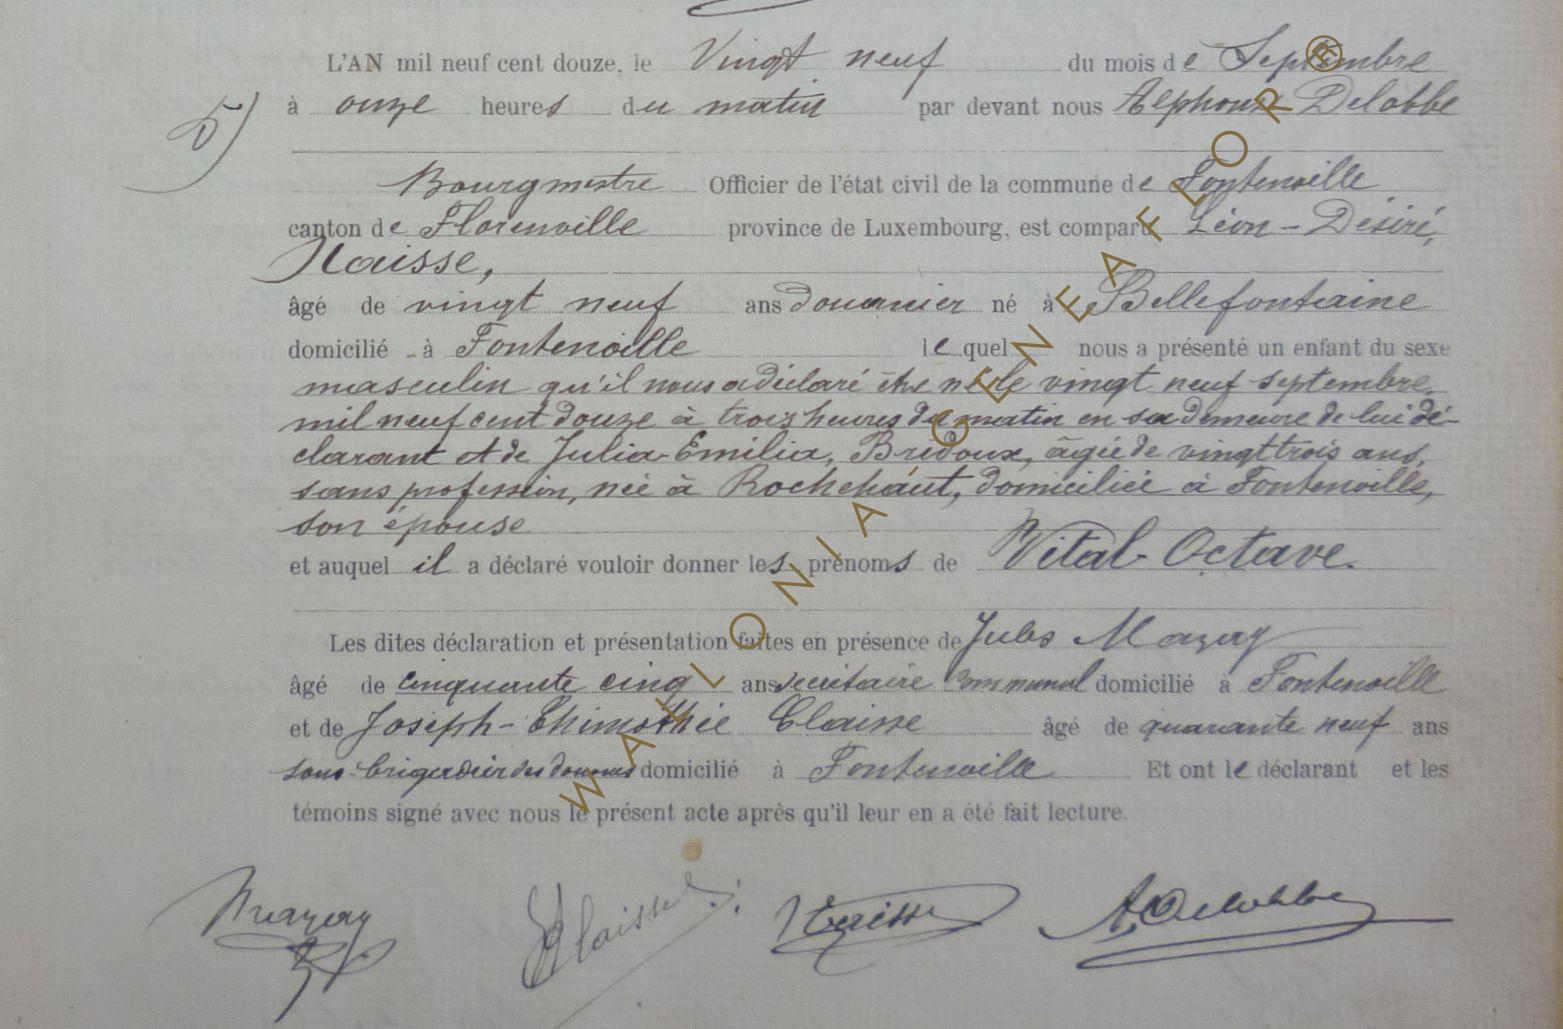 L'AN mil neuf cent douze, le Vingt neuf du mois de Septembre
5) à onze heures du matin par devant nous Alphonse Delobbe
Bourgmestre Officier de l'état civil de la commune de Fontenoille
canton de Florenville province de Luxembourg, est comparu Léon-Désiré,
Naisse,
âgé de vingt neuf ans douanier né à Bellefontaine
domicilié à Fontenoille lequel nous a présenté un enfant du sexe
masculin qu'il nous a déclaré être né le vingt neuf septembre
mil neuf cent douze à trois heures du matin en sa demeure de lui dé-
clarant et de Julia-Emilia, Bridoux, âgée de vingt trois ans,
sans profession, née à Rochehaut, domiciliée à Fontenoille,
son épouse
et auquel il a déclaré vouloir donner les prénoms de Vital-Octave.
Les dites déclaration et présentation faites en présence de Jules Mazay
âgé de cinquante cinq ans secrétaire communal domicilié à Fontenoille
et de Joseph-Thimothée Claisse âgé de quarante neuf ans
sous-brigadier des douanes domicilié à Fontenoille Et ont le déclarant et les
témoins signé avec nous le présent acte après qu'il leur en a été fait lecture.
Mazay Claisse Naisse A. Delobbe
WALLONIA, GENEAFLOR®